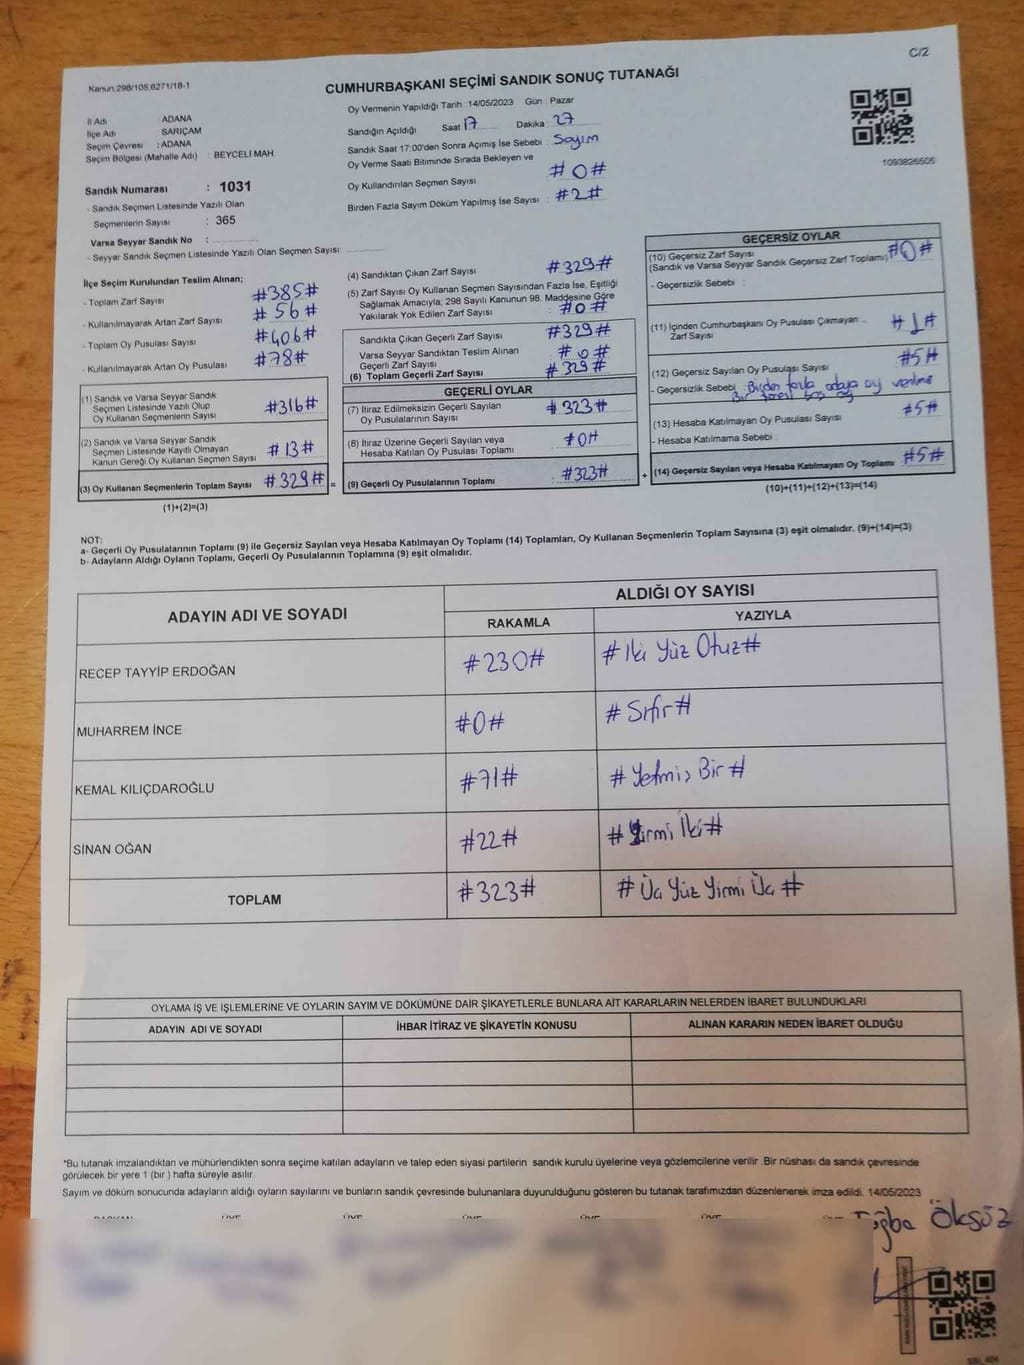 C/2
Kanun 298/105,6271/18-1
CUMHURBAŞKANI SEÇİMİ SANDIK SONUÇ TUTANAĞI
İl Adı ADANA
İlçe Adı SARIÇAM
Seçim Çevresi : ADANA
Seçim Bölgesi (Mahalle Adı) : BEYCELİ MAH.
Oy Vermenin Yapıldığı Tarih : 14/05/2023 Gün : Pazar
Sandığın Açıldığı Saat 17 Dakika : 27
Sandık Saat 17:00'den Sonra Açımış İse Sebebi : Sayım
Oy Verme Saati Bitiminde Sırada Bekleyen ve
Oy Kullandırılan Seçmen Sayısı #0#
Birden Fazla Sayım Döküm Yapılmış İse Sayısı : #2#
1093826605
Sandık Numarası : 1031
- Sandık Seçmen Listesinde Yazılı Olan
Seçmenlerin Sayısı : 365
Varsa Seyyar Sandık No :
- Seyyar Sandık Seçmen Listesinde Yazılı Olan Seçmen Sayısı:
İlçe Seçim Kurulundan Teslim Alınan;
- Toplam Zarf Sayısı #385#
- Kullanılmayarak Artan Zarf Sayısı : #56#
- Toplam Oy Pusulası Sayısı #406#
- Kullanılmayarak Artan Oy Pusulası : #78#
(1) Sandık ve Varsa Seyyar Sandık
Seçmen Listesinde Yazılı Olup
Oy Kullanan Seçmenlerin Sayısı #316#
(2) Sandık ve Varsa Seyyar Sandık
Seçmen Listesinde Kayıtlı Olmayan
Kanun Gereği Oy Kullanan Seçmen Sayısı #13#
(3) Oy Kullanan Seçmenlerin Toplam Sayısı #329# =
(1)+(2)=(3)
(4) Sandıktan Çıkan Zarf Sayısı #329#
(5) Zarf Sayısı Oy Kullanan Seçmen Sayısından Fazla İse, Eşitliği
Sağlamak Amacıyla; 298 Sayılı Kanunun 98. Maddesine Göre
Yakılarak Yok Edilen Zarf Sayısı : #0#
Sandıkta Çıkan Geçerli Zarf Sayısı #329#
Varsa Seyyar Sandıktan Teslim Alınan
Geçerli Zarf Sayısı #0#
(6) Toplam Geçerli Zarf Sayısı #329#
GEÇERLİ OYLAR
(7) İtiraz Edilmeksizin Geçerli Sayılan
Oy Pusulalarının Sayısı #323#
(8) İtiraz Üzerine Geçerli Sayılan veya
Hesaba Katılan Oy Pusulası Toplamı #0#
(9) Geçerli Oy Pusulalarının Toplamı : #323# +
GEÇERSİZ OYLAR
(10) Geçersiz Zarf Sayısı
(Sandık ve Varsa Seyyar Sandık Geçersiz Zarf Toplamı) #0#
- Geçersizlik Sebebi :
(11) İçinden Cumhurbaşkanı Oy Pusulası Çıkmayan
Zarf Sayısı #1#
(12) Geçersiz Sayılan Oy Pusulası Sayısı #5#
- Geçersizlik Sebebi : Birden fazla adaya oy verilmiş
Bir boş oy
(13) Hesaba Katılmayan Oy Pusulası Sayısı #5#
- Hesaba Katılmama Sebebi :
(14) Geçersiz Sayılan veya Hesaba Katılmayan Oy Toplamı #5#
(10)+(11)+(12)+(13)=(14)
NOT:
a- Geçerli Oy Pusulalarının Toplamı (9) ile Geçersiz Sayılan veya Hesaba Katılmayan Oy Toplamı (14) Toplamları, Oy Kullanan Seçmenlerin Toplam Sayısına (3) eşit olmalıdır. (9)+(14)=(3)
b- Adayların Aldığı Oyların Toplamı, Geçerli Oy Pusulalarının Toplamına (9) eşit olmalıdır.
ADAYIN ADI VE SOYADI ALDIĞI OY SAYISI
RAKAMLA YAZIYLA
RECEP TAYYİP ERDOĞAN #230# #İki Yüz Otuz#
MUHARREM İNCE #0# #Sıfır#
KEMAL KILIÇDAROĞLU #71# #Yetmiş Bir#
SİNAN OĞAN #22# #Yirmi İki#
TOPLAM #323# #Üç Yüz Yirmi Üç#
OYLAMA İŞ VE İŞLEMLERİNE VE OYLARIN SAYIM VE DÖKÜMÜNE DAİR ŞİKAYETLERLE BUNLARA AİT KARARLARIN NELERDEN İBARET BULUNDUKLARI
ADAYIN ADI VE SOYADI İHBAR İTİRAZ VE ŞİKAYETİN KONUSU ALINAN KARARIN NEDEN İBARET OLDUĞU
*Bu tutanak imzalandıktan ve mühürlendikten sonra seçime katılan adayların ve talep eden siyasi partilerin sandık kurulu üyelerine veya gözlemcilerine verilir .Bir nüshası da sandık çevresinde
görülecek bir yere 1 (bir ) hafta süreyle asılır.
Sayım ve döküm sonucunda adayların aldığı oyların sayılarını ve bunların sandık çevresinde bulunanlara duyurulduğunu gösteren bu tutanak tarafımızdan düzenlenerek imza edildi. 14/05/2023
Tuğba Öksüz